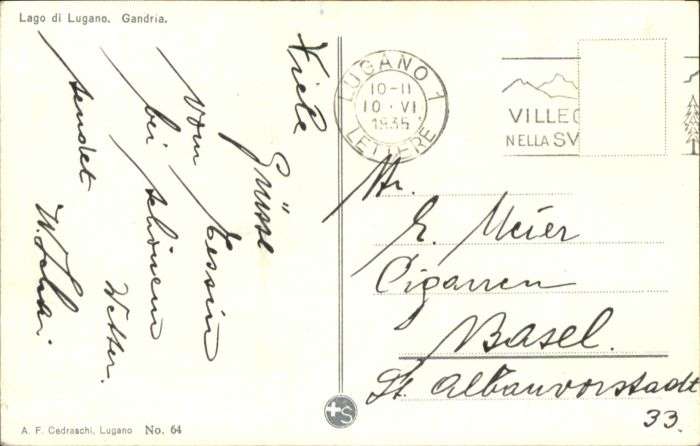 Lago di Lugano. Gandria.
Viele
Grüsse
vom Tessin
bei schönem
Wetter.
sendet
LUGANO 1
10-11
10·VI
1935
LETTERE
NELLA
Hr.
E. Meier
Cigarren
Basel.
St. Albanvorstadt
33.
A. F. Cedraschi, Lugano No. 64